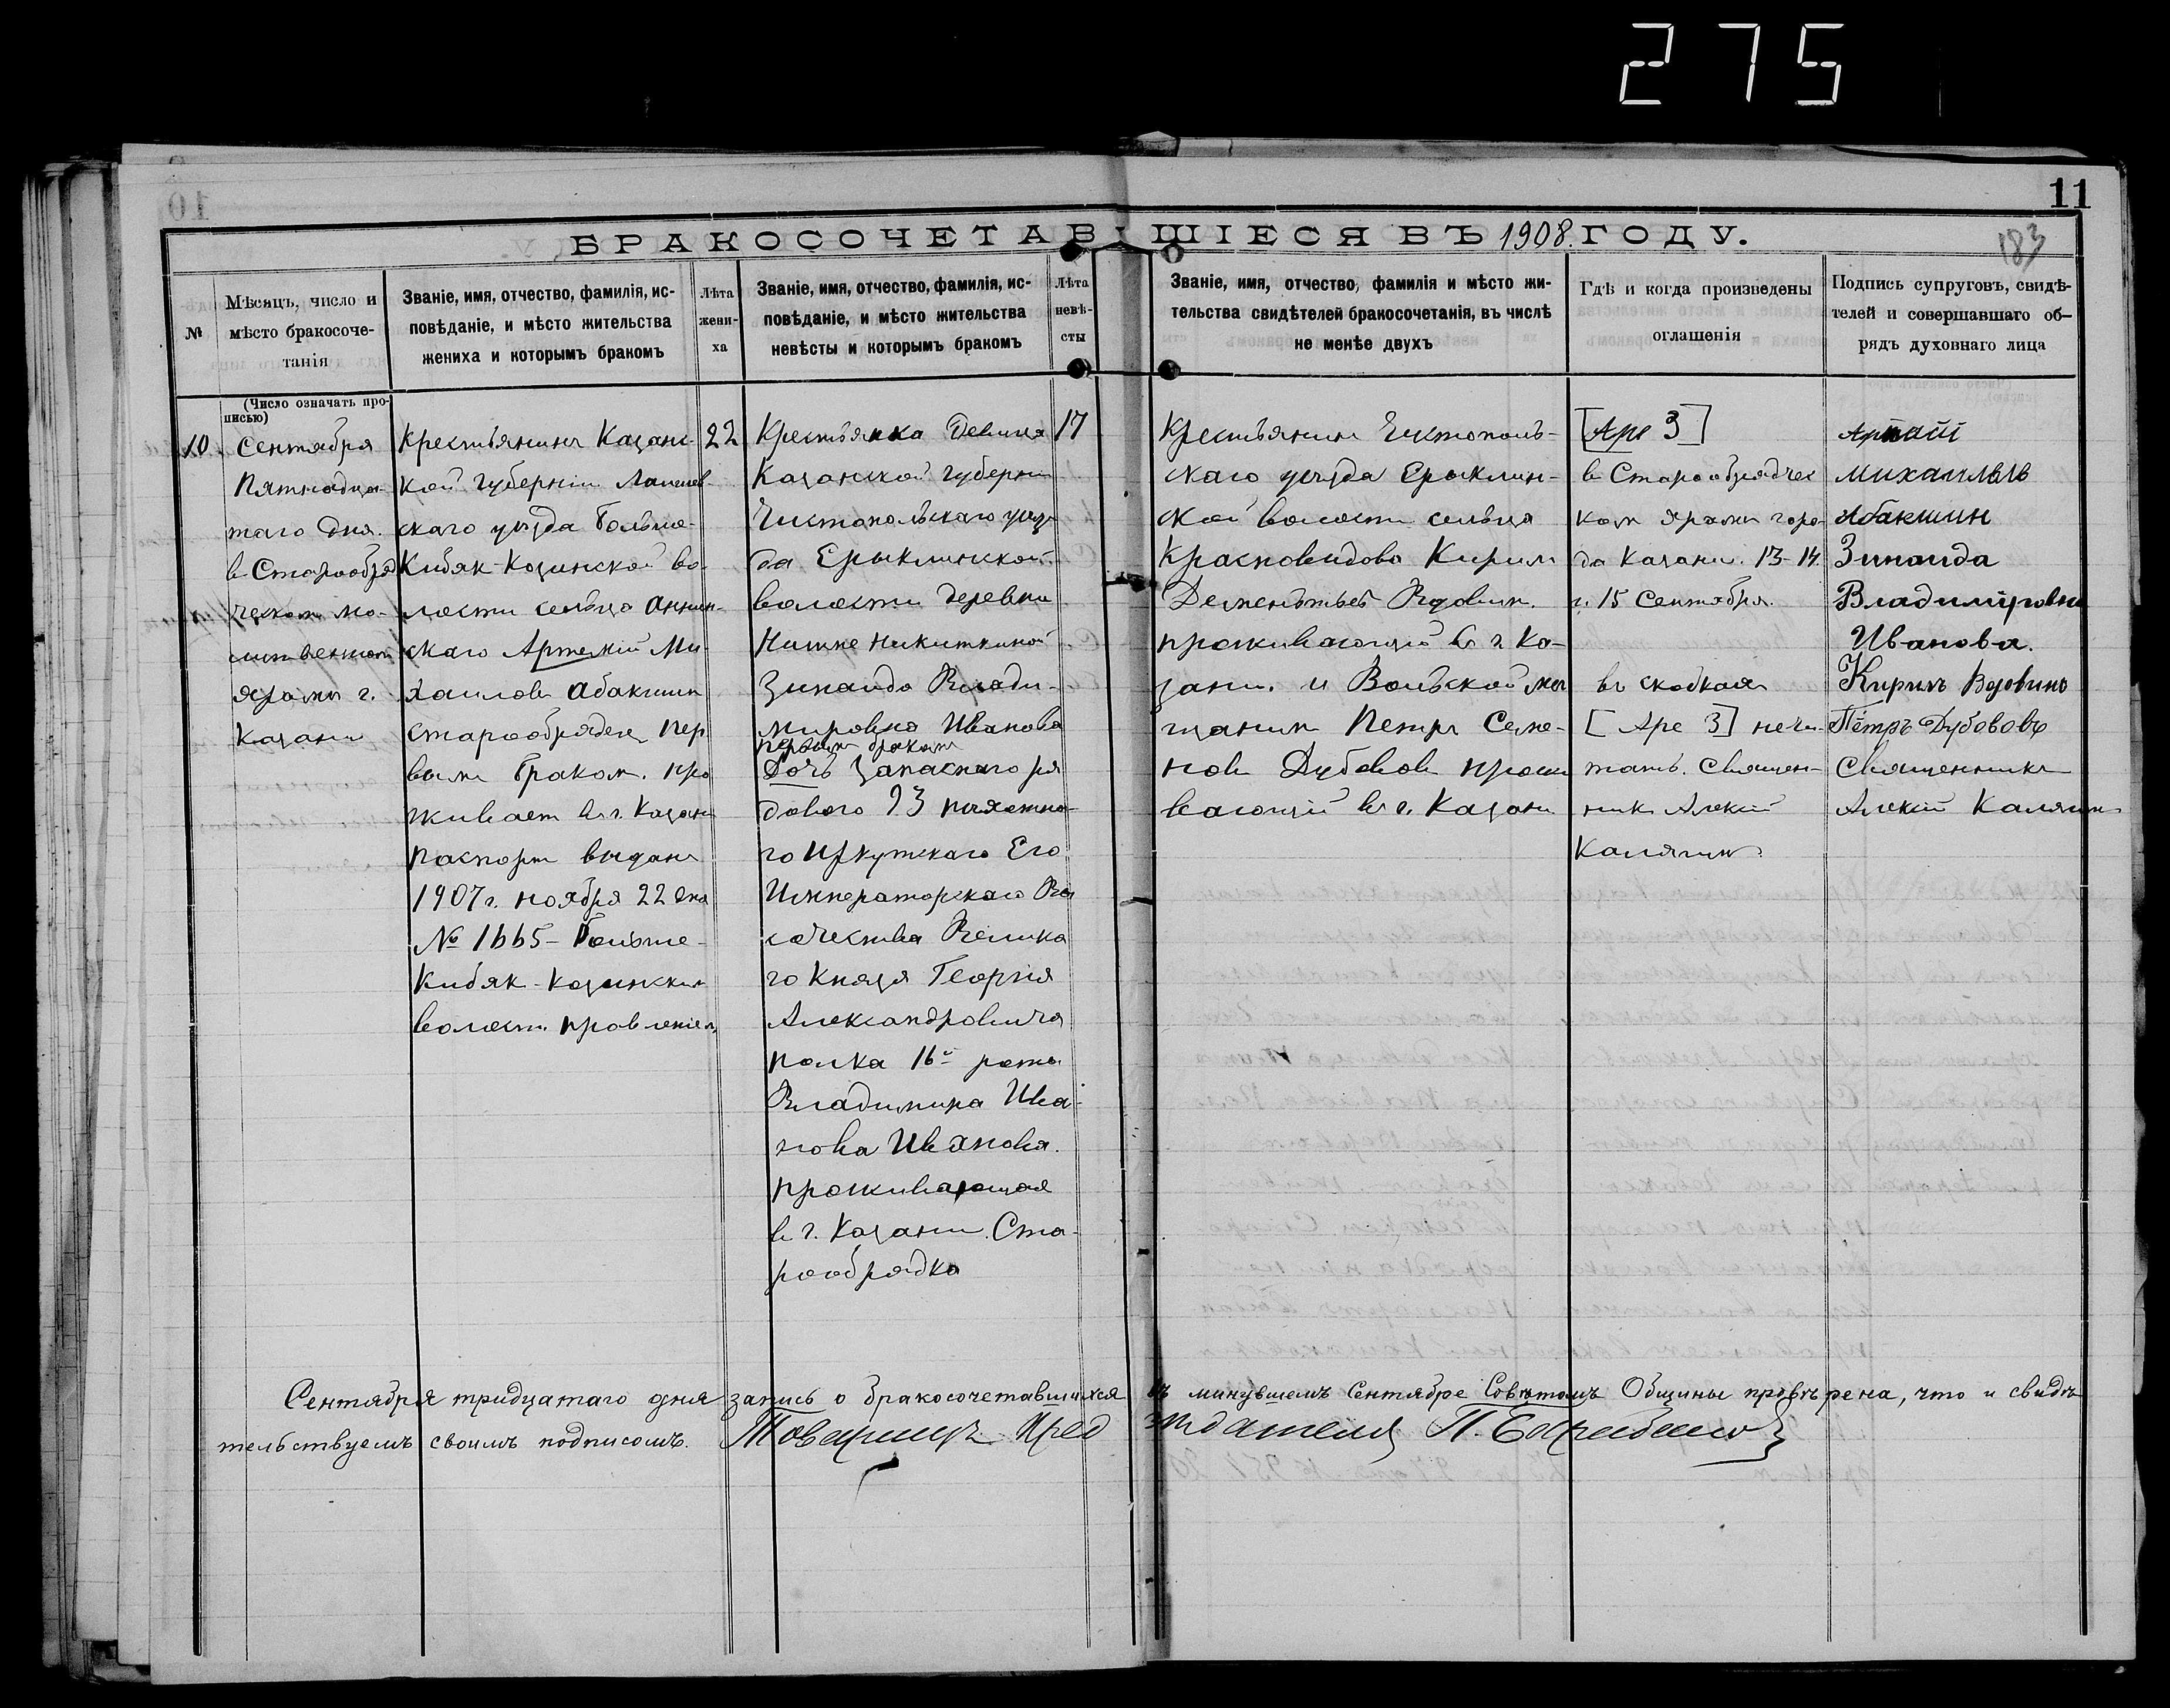 275
11
БРАКОСОЧЕТАВШІЕСЯ ВЪ 1908 ГОДУ.
183
№
Мѣсяцъ, число и
мѣсто бракосоче-
танія
Званіе, имя, отчество, фамилія, ис-
повѣданіе, и мѣсто жительства
жениха и которымъ бракомъ
Лѣта
жени-
ха
Званіе, имя, отчество, фамилія, ис-
повѣданіе, и мѣсто жительства
невѣсты и которымъ бракомъ
Лѣта
невѣ-
сты
Званіе, имя, отчество, фамилія и мѣсто жи-
тельства свидѣтелей бракосочетанія, въ числѣ
не менѣе двухъ
Гдѣ и когда произведены
оглашенія
Подпись супруговъ, свидѣ-
телей и совершавшаго об-
рядъ духовнаго лица
(Число означать про-
писью)
10
Сентября
Пятнадца-
таго дня.
в Старообряд
ческом мо-
литвенном
храмѣ г.
Казани
Крестьянинъ Казанс-
кой губерніи Лаишев-
скаго уѣзда Больше-
Кибяк-Козинской во-
лости сельца Аннин-
скаго Артемій Ми-
хаилов Абакшин
старообрядец пер
вым браком. про
живает в г. Казани
паспорт выдан
1907 г. ноября 22 дня
№ 1665 - Больше-
Кибяк-Козинским
волостн. правленіем
22
Крестьянка Девица
Казанской губерніи
Чистопольскаго уез
да Ерыклинской
волости деревни
Нижне Никиткиной
Зинаида Влади-
мировна Иванова
первым браком
Дочь запаснаго ря
дового 93 пехотна-
го Иркутскаго Его
Императорскаго Вы
сочества Велика
го Князя Георгія
Александровича
полка 16й роты
Владимира Ива-
нова Иванова.
проживающая
в г. Казани. Ста-
рообрядка
17
Крестьянин Чистополь-
скаго уезда Ерыклин-
ской волости сельца
Красновидово Кирил
Дементьев Вдовин.
проживающій в г. Ка-
зани. и Вольской ме
щанин Петр Семе-
нов Дубовов прожи
вающій в г. Казани
[Аре 3]
в Старообрядчес
ком храме горо-
да Казани. 13-14
и 15 Сентября.
въ скобках
[Аре 3] нечи-
тать. Священ-
ник Алекій
Калягин
Михаилывъ
Абакшин
Зинаида
Владиміровна
Иванова.
Кирилъ Вдовинъ
Пётръ Дубововъ
Священникъ
Алекій Калягин
Сентября тридцатаго дня запись о бракосочетавшихся въ минувшемъ Сентябре Советомъ Общины провѣрена, что и свидѣ-
тельствуемъ своимъ подписомъ. Товарищъ Пред